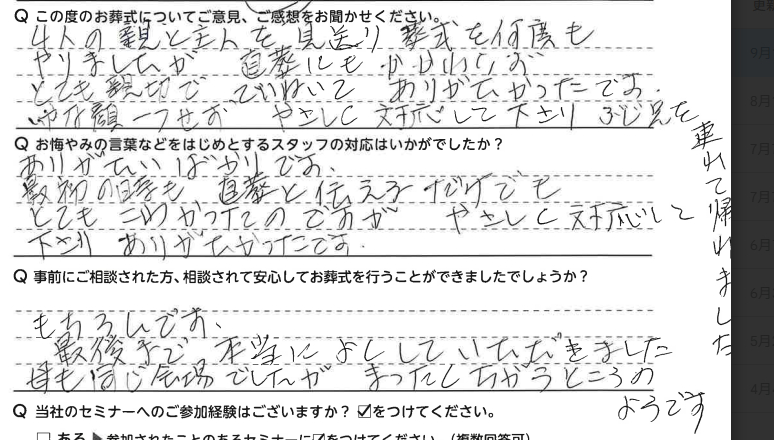 Q この度のお葬式についてご意見、ご感想をお聞かせください。
4人の親と主人を見送り 葬式を何度も
やりましたが 直葬にもかかわらず
とても親切で ていねいで ありがたかったです。
いやな顔一つせず やさしく対応して下さり ぶじ兄を
連れて帰れました
Q お悔やみの言葉などをはじめとするスタッフの対応はいかがでしたか?
ありがたいばかりです。
最初の時も 直葬と伝えるだけでも
とてもこわかったのですが やさしく対応して
下さり ありがたかったです。
Q 事前にご相談された方、相談されて安心してお葬式を行うことができましたでしょうか?
もちろんです、
最後まで 本当に よくしていただきました
母も同じ会場でしたが まったくちがうところの
ようです
Q 当社のセミナーへのご参加経験はございますか? ☑をつけてください。
□ ある ▶ 参加されたことのあるセミナーに☑をつけてください。(複数回答可)
更新
9月
8月
7月
7月
6月
6月
5月
4月